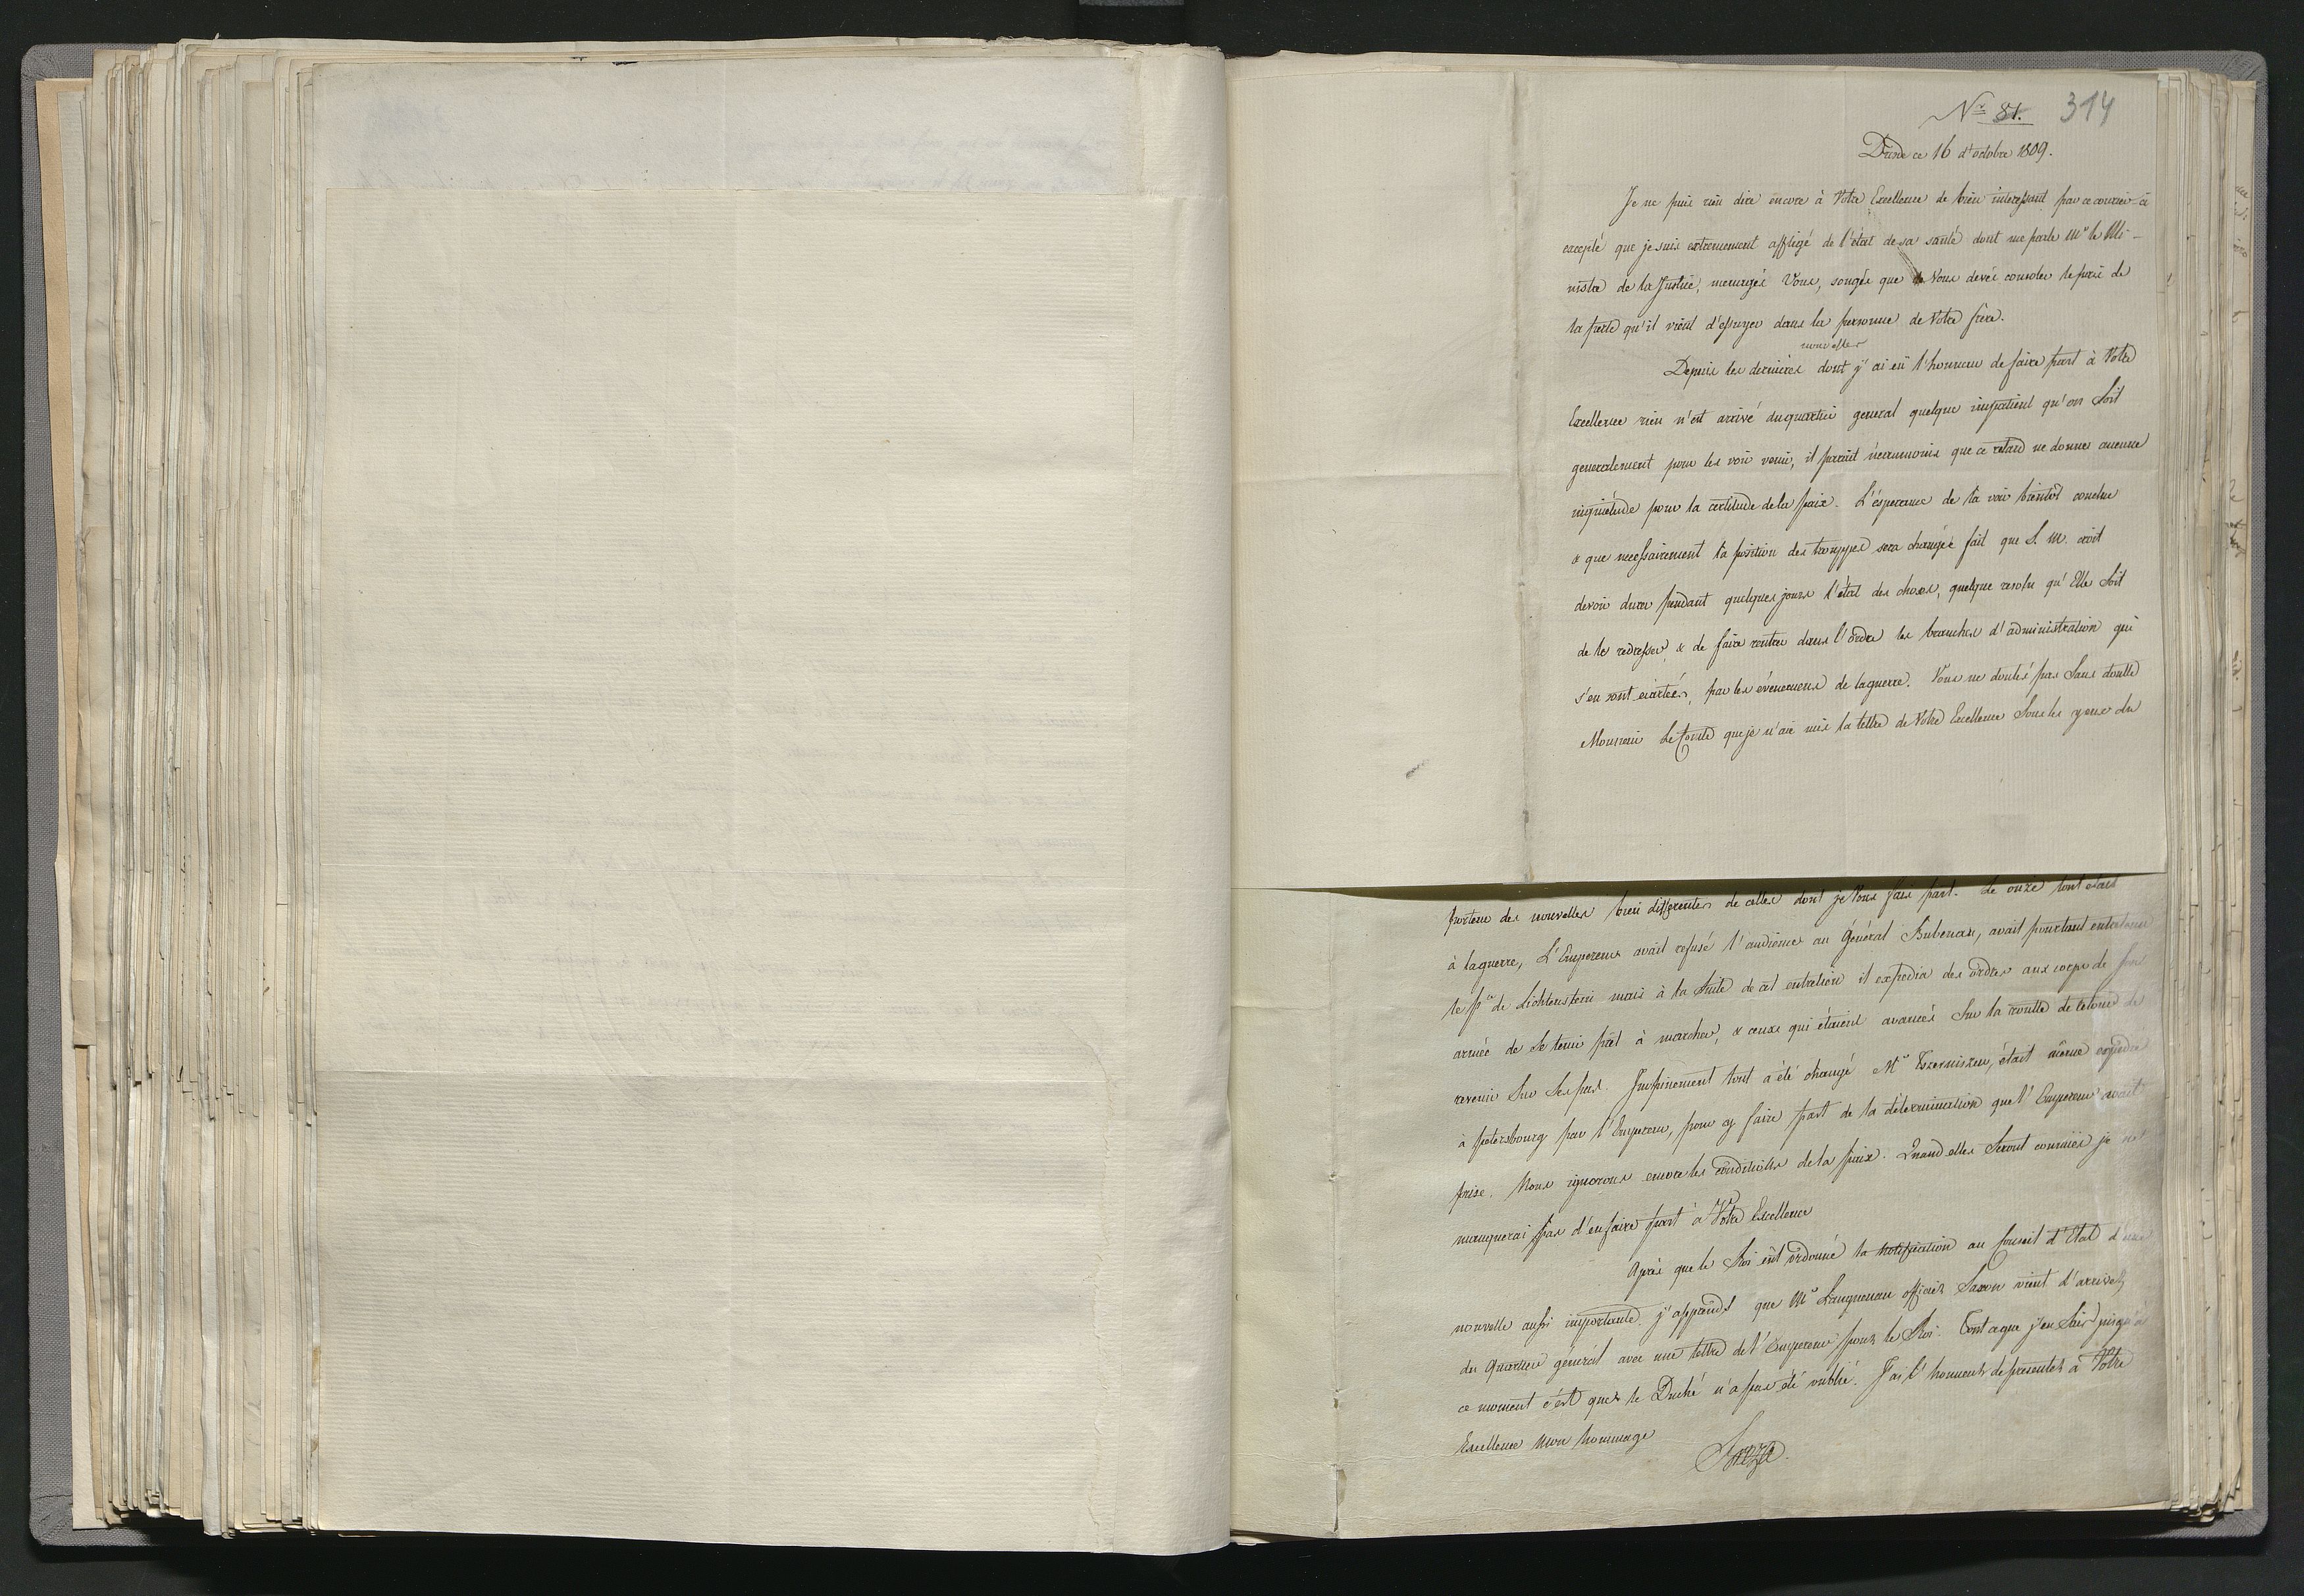 Nr 81. 314
Dresde ce 16 d'octobre 1809.
Je ne puis rien dire encore à Votre Excellence de bien interessant par ce courrier-ci
excepté que je suis extremement affligé de l'état de sa santé dont me parle Mr le Mi-
nistre de la Justice, menagés Vous, songés que Vous devés consoler le païs de
la perte qu'il vient d'essuyer dans la personne de Votre frère.
nouvelles
Depuis les dernières dont j'ai eü l'honneur de faire part à Votre
Excellence rien n'est arrivé du quartier general quelque impatient qu'on soit
generalement pour les voir venir, il parait néanmoins que ce retard ne donne aucune
inquiétude pour la certitude de la paix. L'ésperance de la voir bientôt conclue
& que necessairement la position des trouppes sera changée fait que S. M. croit
devoir durer pendant quelques jours l'état des choses, quelque resolu qu'Elle soit
de le redresser, & de faire rentrer dans l'ordre les branches d'administration qui
s'en sont ecartées, par les évenemens de la guerre. Vous ne doutés pas sans doutte
Monsieur le Comte que je n'aie mis la lettre de Votre Excellence sous les yeux du
porteur des nouvelles bien differentes de celles dont je Vous fais part. Le onze tout était
à la guerre, L'Empereur avait refusé l'audience au Général Bubenau, avait pourtant entretenu
le Pce de Lichtenstein mais à la suite de cet entretien il expedia des ordres aux corps de son
armée de se tenir prêt à marcher, & ceux qui étaient avancés sur la routte de retour de
revenir sur ses pas. Inopinement tout a été changé Mr Czerniszew, était même expedié
à Petersbourg par l'Empereur, pour y faire part de la détermination que l'Empereur avait
prise. Nous ignorons encore les conditions de la paix. Quand elles seront connües je ne
manquerai pas d'en faire part à Votre Excellence
Après que le Roi eüt ordonné la notification au Conseil d'Etat d'une
nouvelle aussi importante, j'apprends que Mr Langnenau officier Saxon vient d'arriver
du Quartier général avec une lettre de l'Empereur pour le Roi. Tout ce que j'en sais jusqu'à
ce moment c'est que le Duché n'a pas été oublié. J'ai l'honneur de presenter à Votre
Excellence mon hommage
Breza